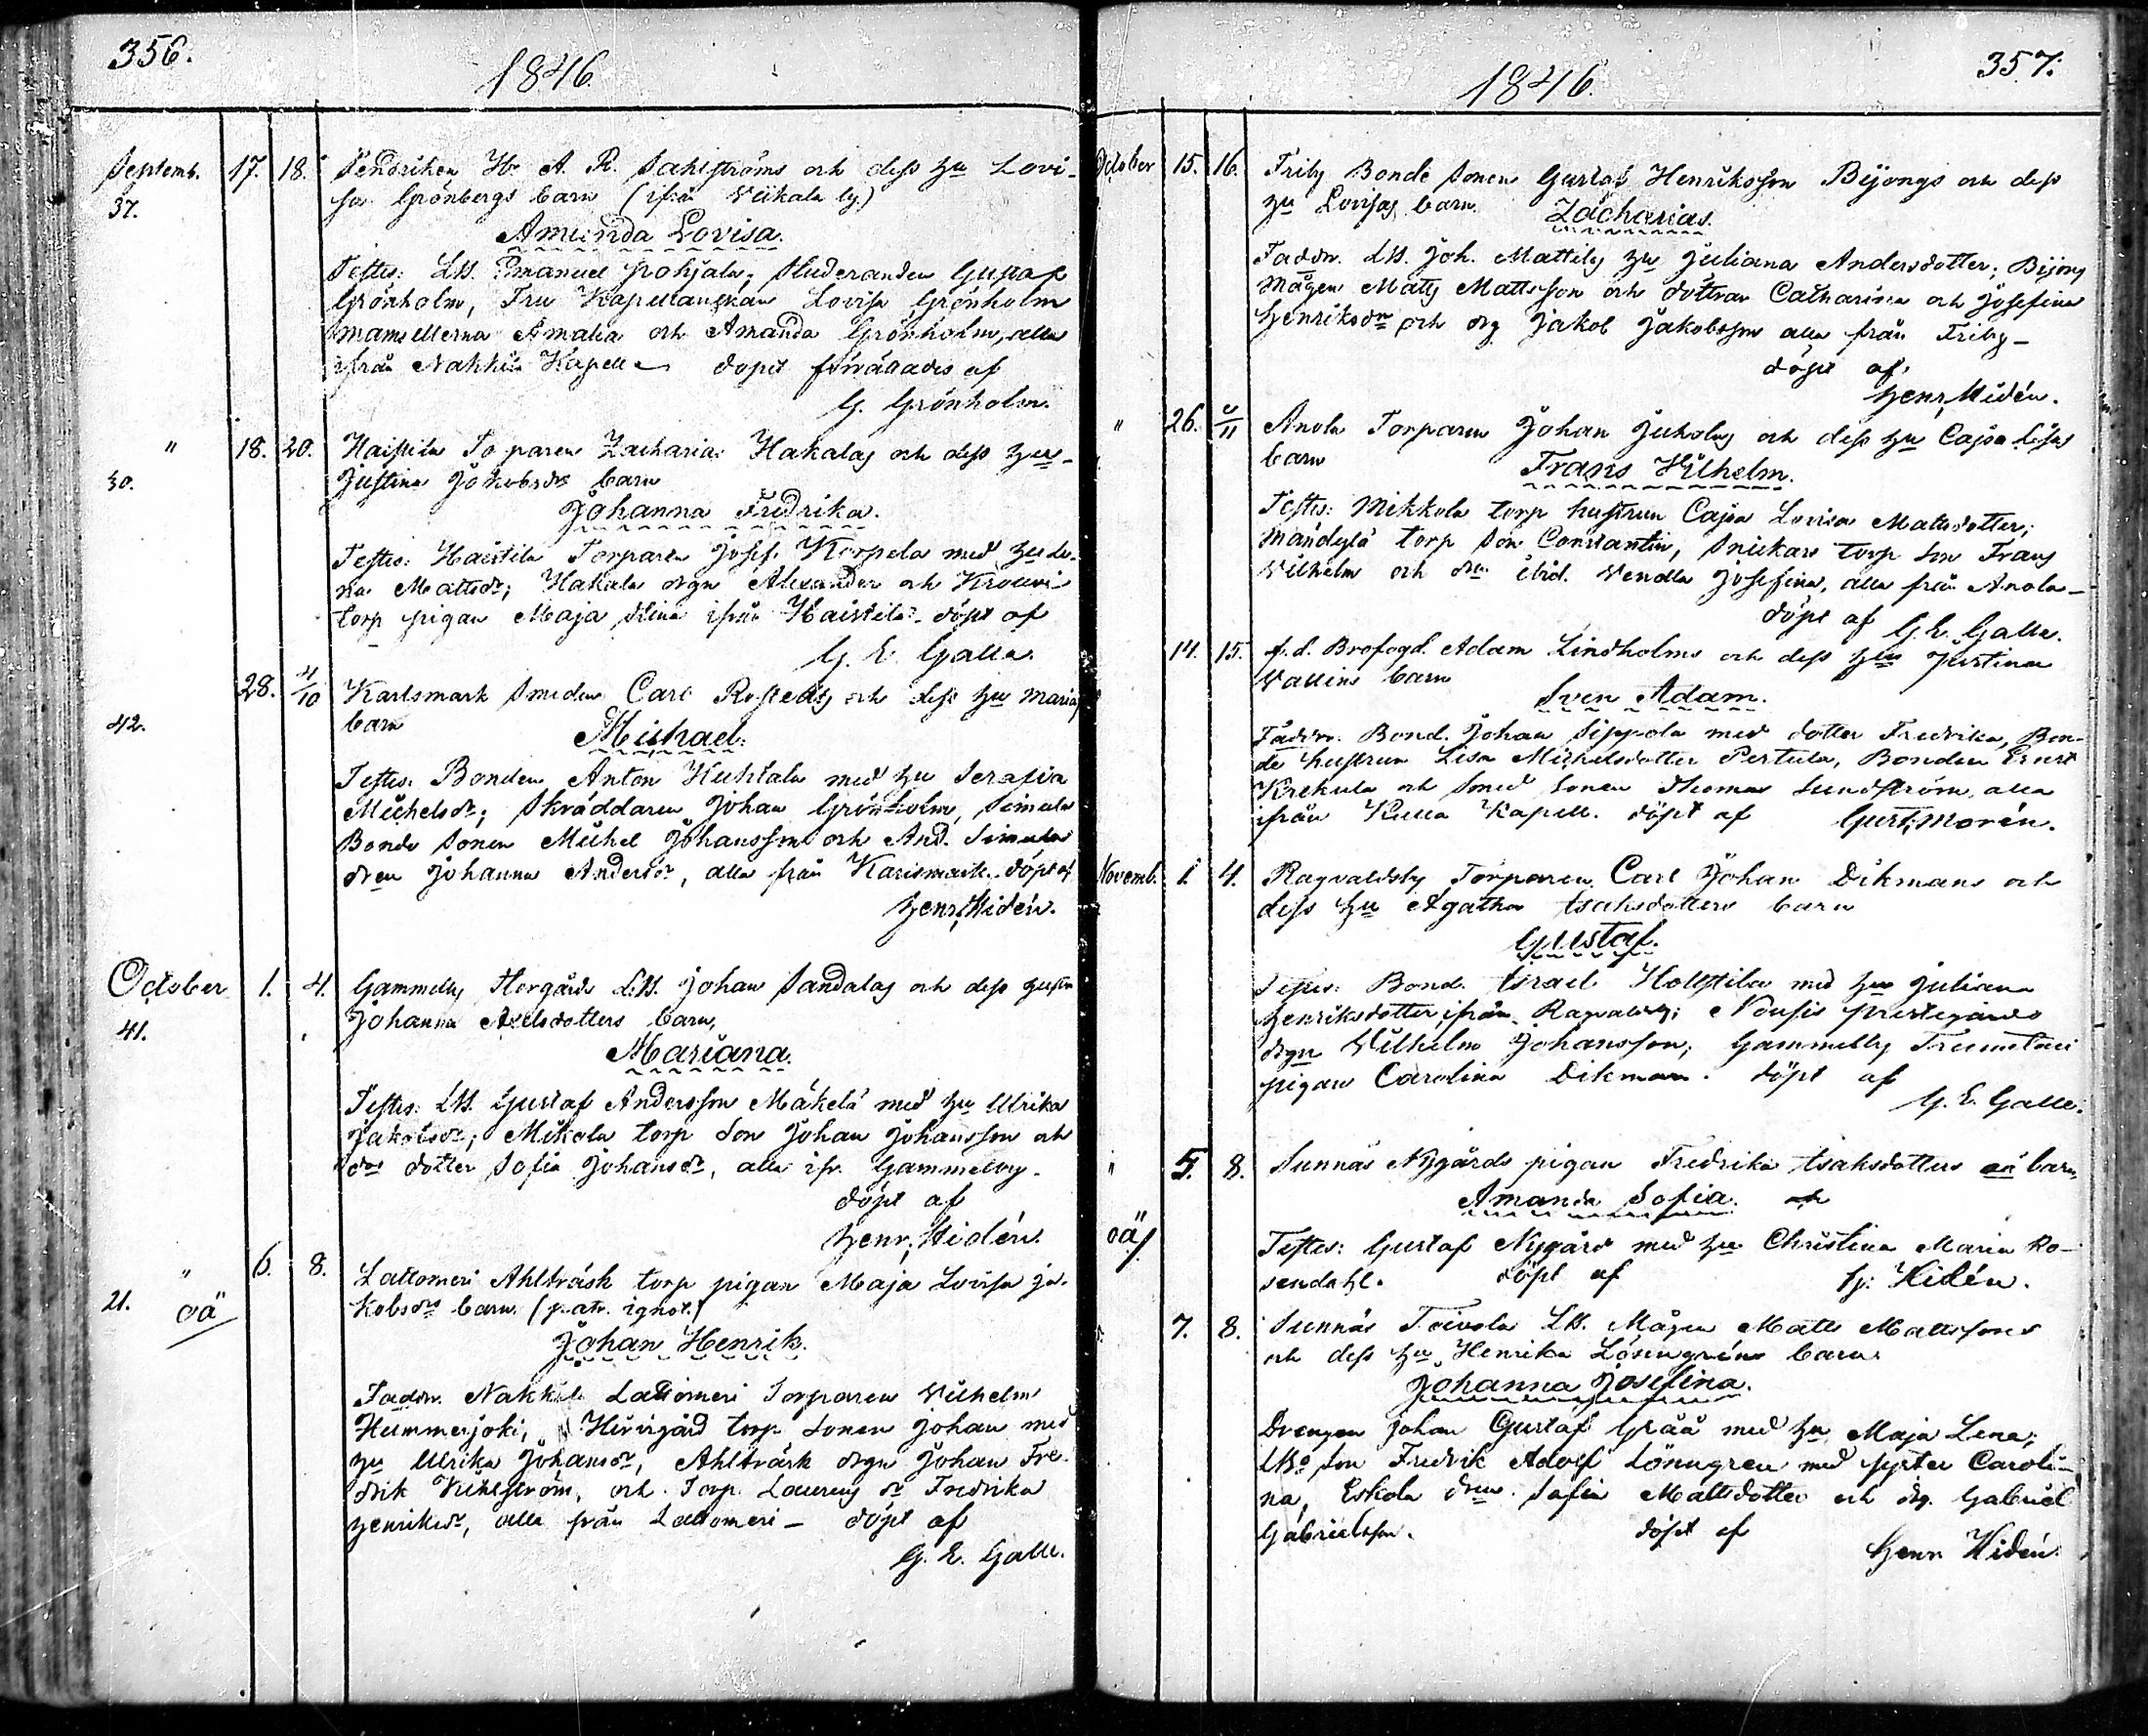 356.
1846.
Septemb. 17. 18. Fendriken Hr A. R. Sahlströms och dess hu Lovi-
37. sa Grönbergs barn (ifrån Viikala by)
Amanda Lovisa.
Testes: LB. Emanuel Pohjala; Studeranden Gustaf
Grönholm, Fru Kapellanskan Lovisa Grönholm
mamsellerna Amalia och Amanda Grönholm, alla
ifrån Nakkila Kapell dopet förrättades af
G. Grönholm.
" 18. 20. Haistila Torparen Zacharias Hakalas och dess hus
30. Justina Jakobsdrs barn
Johanna Fredrika.
Testes: Haistila Torparen Josef Korpela med hu
Mattsdr; Hakala drgn Alexander och Krouvi
torp pigan Maja Stina ifrån Haistila döpt af
G. E. Galle.
28. 4/10 Karlsmark Smeden Carl Rostedts och dess hu Marias
42. barn
Michael.
Testes. Bonden Anton Huhtala med hu Serafia
Michelsdr; Skräddaren Johan Grönholm, Simula
Bonde Sonen Michel Johansson och And. Simulas
dren Johanna Andersdr, alla från Karlsmark. döpt af
Henr. Hidén.
October 1. 4. Gammelby Storgårds LB. Johan Sandalas och dess hustru
41. Johanna Axelsdotters barn,
Mariana.
Testes: LB. Gustaf Andersson Mäkelä med hu Ulrika
Jakobsdr; Mikola torp Son Johan Johansson och
drs dotter Sofia Johansdr, alla ifr. Gammelby.
döpt af
Henr. Hidén.
" 6. 8. Lattomeri Ahlträsk torp pigan Maja Lovisa Ja-
21. oä kobsdrs barn. (patr. ignot.)
Johan Henrik.
Faddr. Nakkila Lattomeri Torparen Vilhelm
Hummerjoki, Hiirirgård torp Sonen Johan med
hu Ulrika Johansdr, Ahlträsk drgn Johan Fre-
drik Vichström, och Torp. Laurens dr Fredrika
Henriksdr, alla från Lattomeri – döpt af
G. E. Galle.
357.
1846.
October 15. 16. Friby Bonde Sonen Gustaf Henriksson Bijongs och dess
hu Lovisas barn. Zacharias.
Faddr. LB. Joh. Mattilas hu Juliana Andersdotter; Bijong
Mågen Matts Mattsson och döttran Catharina och Josefina
Henriksdr och drg Jakob Jakobsson alla från Friby –
döpt af
Henr. Hidén.
" 26. 2/11 Anola Torparen Johan Juholas och dess hu Cajsa Lisas
barn
Frans Vilhelm.
Testes: Mikkola torp hustrun Cajsa Lovisa Matsdotter;
Mändylä torp Son Constantin, Snickars torp Son Frans
Vilhelm och drn ibid. Vendla Josefina, alla från Anola –
döpt af G. E. Galle.
14. 15. f. d. Brofogd. Adam Lindholms och dess hus Justina
Vallins barn
Sven Adam.
Faddr. Bond. Johan Sippola med dotter Fredrika, Bon-
de hustrun Lisa Michelsdotter Pertula, Bonden Ernst
Krekula och Smed Sonen Thomas Sundström, alla
ifrån Kulla Kapell. döpt af Gust. Morén.
Novemb. 1. 4. Ragvaldsby Torparen Carl Johan Dikmans och
dess hu Agatha Isaksdotters barn
Gustaf.
Testes: Bond. Israel Hollstila med hu Juliana
Henriksdotter, ifrån Ragvaldsby; Nousis prestegårds
drgn Vilhelm Johansson; Gammelby Trumetari
pigan Carolina Dikman. döpt af
G. E. Galle.
" 5. 8. Sunnäs Nygårds pigan Fredrika Isaksdotters oä barn,
Amanda Sofia.
oä Testes: Gustaf Nygård med hu Christina Maria Ro-
sendahl. döpt af H. Hidén.
7. 8. Sunnäs Toivola LB. Mågen Matts Mattssons
och dess hu Henrika Lönngréns barn
Johanna Josefina.
Drengen Johan Gustaf Grää med hu Maja Lena;
LBs Son Fredrik Adolf Lönngren med syster Caroli-
na, Eskola drn Sofia Mattsdotter och drg. Gabriel
Gabrielsson. döpt af Henr. Hidén.